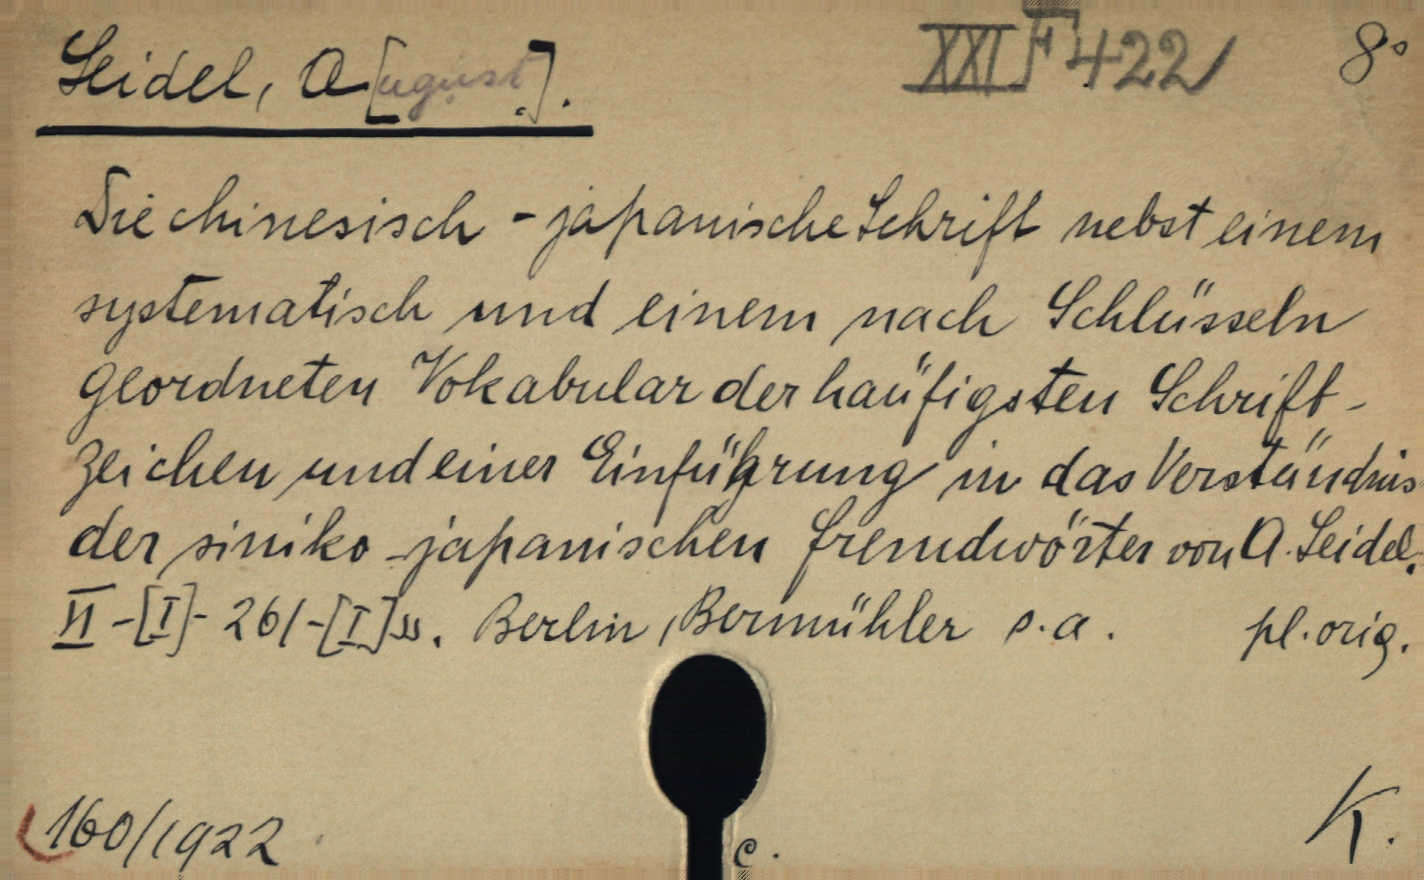 Seidel, A[ugust]. XXI F 422 8°
Die chinesisch-japanische Schrift nebst einem
systematisch und einem nach Schlüsseln
geordneten Vokabular der haüfigsten Schrift-
zeichen und einer Einführung in das Verständnis
der siniko-japanischen Fremdwörter von A. Seidel.
VI-[I]- 261-[I] w. Berlin, Bermühler s.a. pl. orig.
160/1922 c. K.